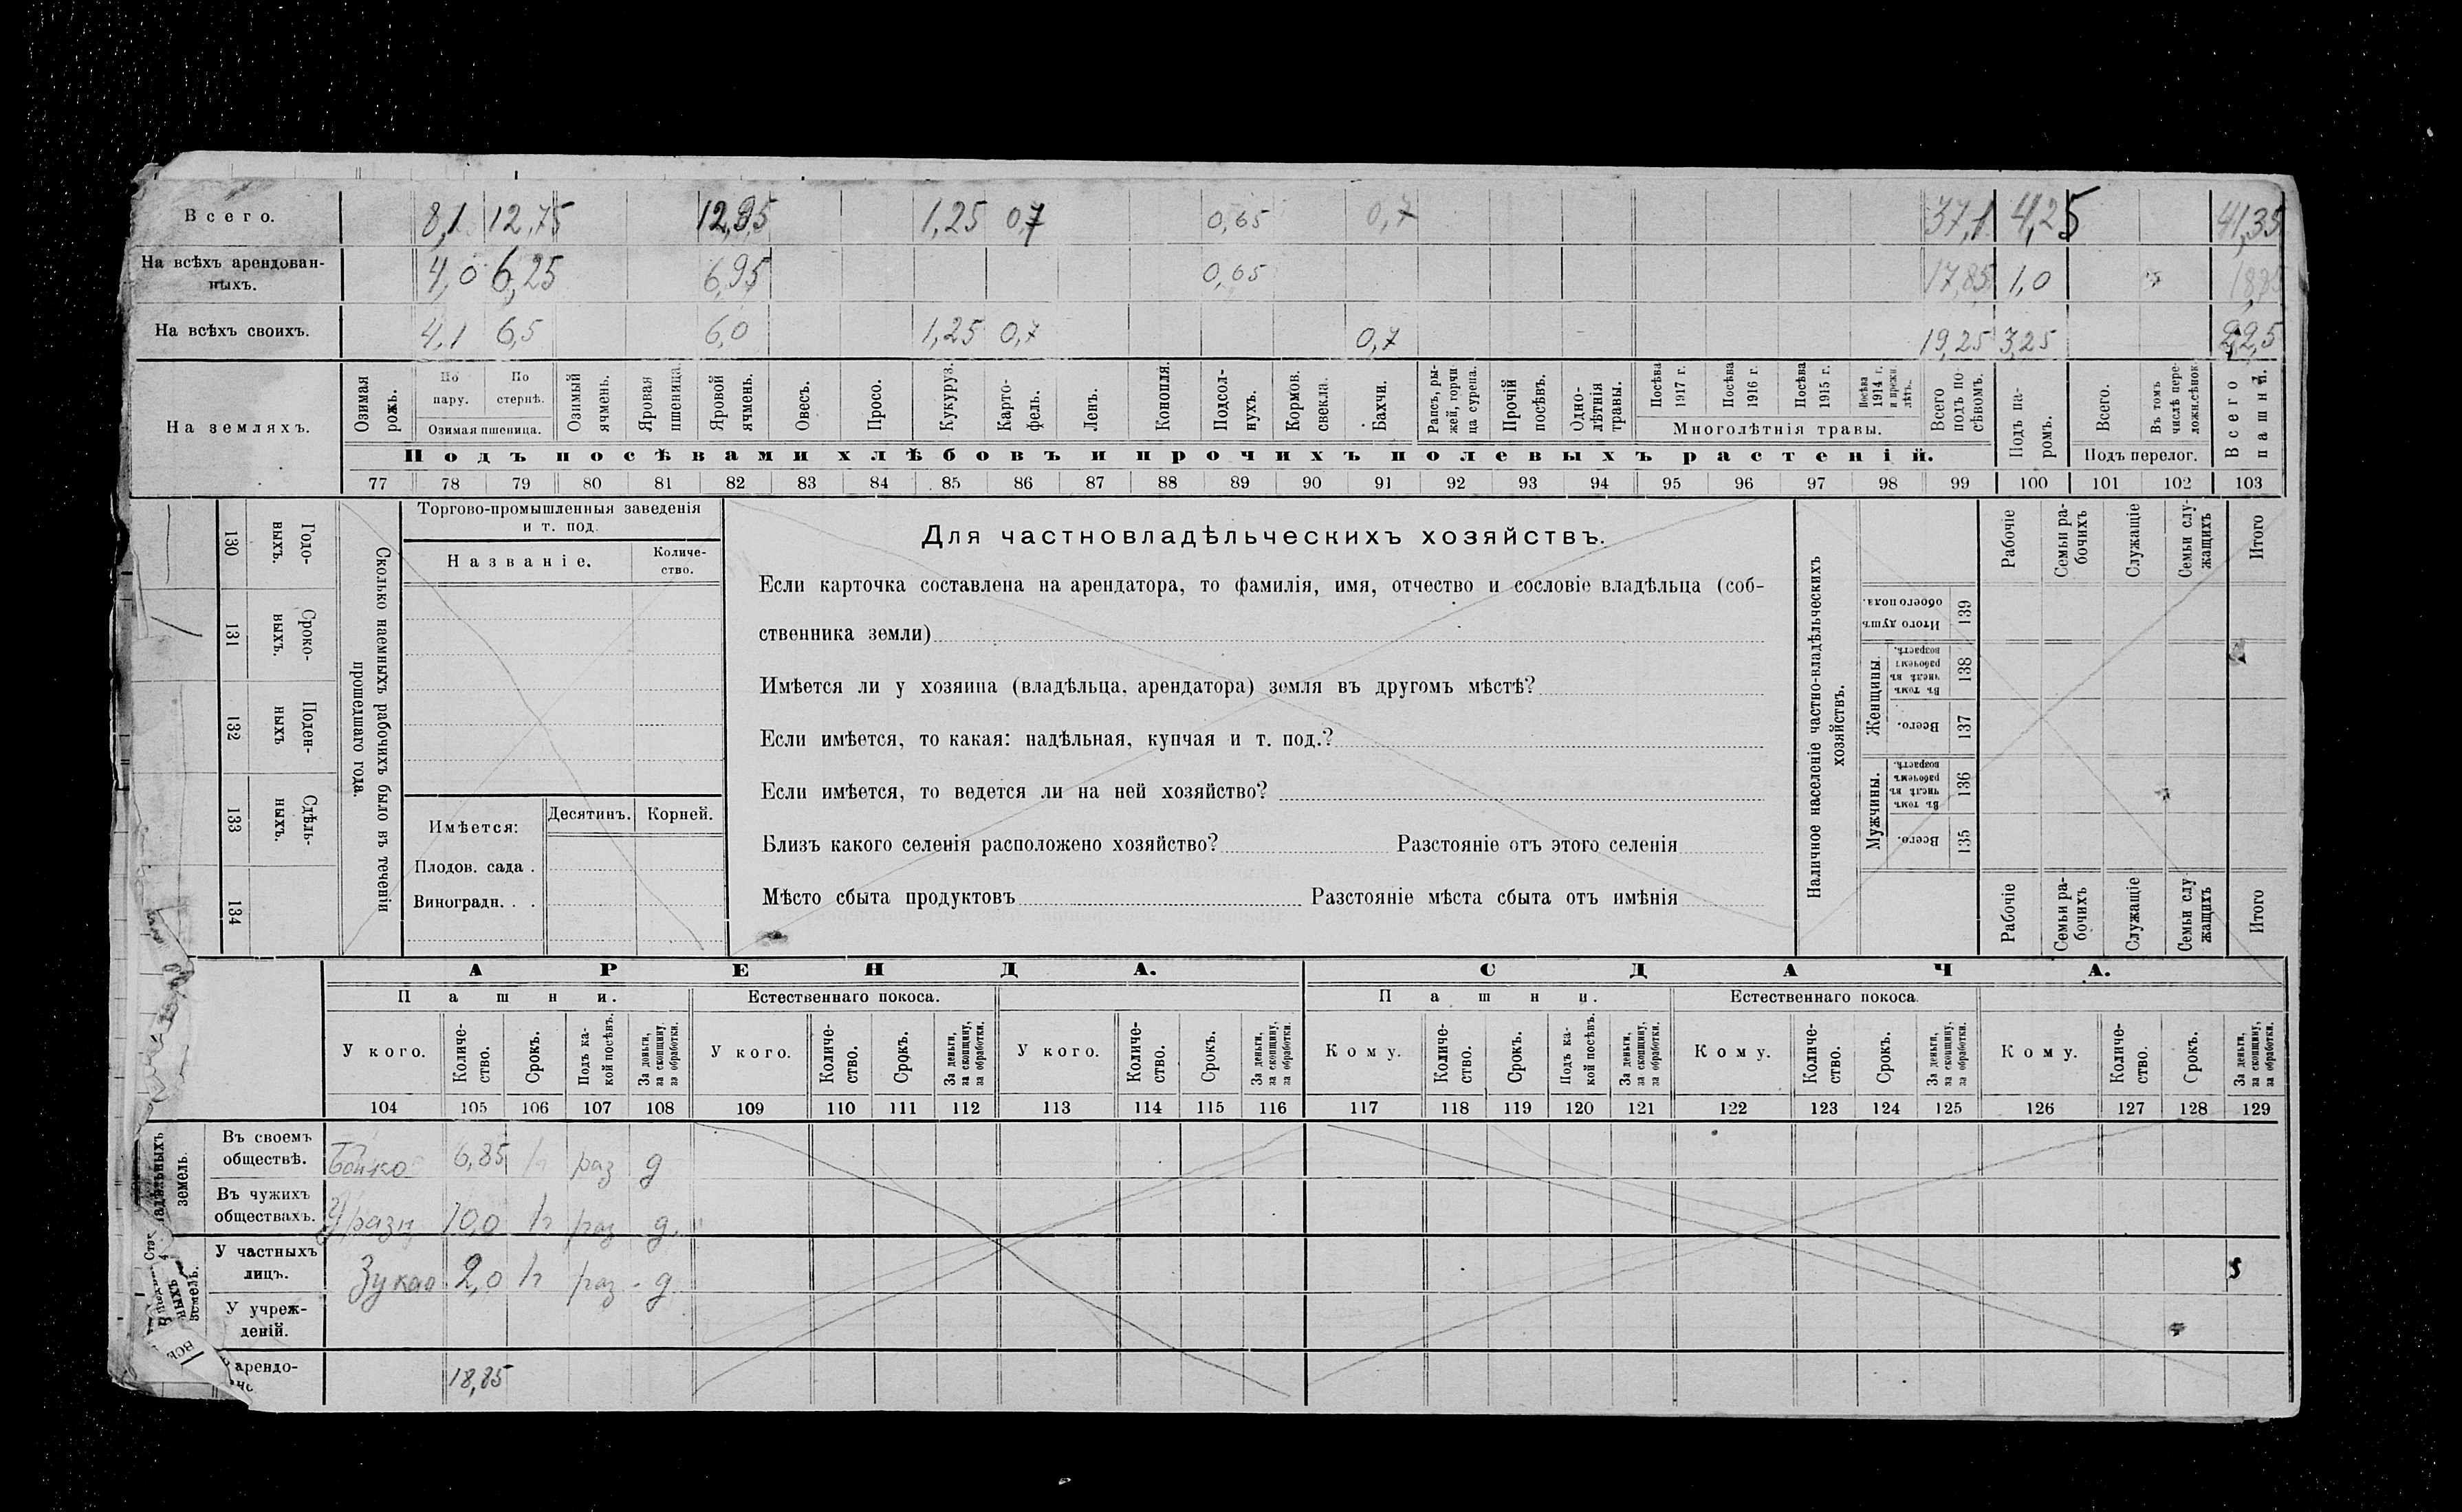 Всего. 8,1 12,75 12,95 1,25 0,7 0,65 0,7 37,1 4,25 41,35
На всѣхъ арендован-
ныхъ. 4,0 6,25 6,95 0,65 17,85 1,0
На всѣхъ своихъ. 4,1 6,5 6,0 1,25 0,7 0,7 19,25 3,25 22,5
На земляхъ.
Озимая рожь.
По пару.
По стернѣ.
Озимая пшеница.
Озимый ячмень.
Яровая пшеница.
Яровой ячмень.
Овесъ.
Просо.
Кукуруз.
Карто-фель.
Ленъ.
Конопля.
Подсол-нухъ.
Кормов. свекла.
Бахчи.
Рапсъ, ры-жей, горчи-ца сурепа.
Прочій посѣвъ.
Одно-лѣтнія травы.
Посѣва 1917 г.
Посѣва 1916 г.
Посѣва 1915 г.
Посѣва 1914 г. и прежн. лѣтъ.
Многолѣтнія травы.
Всего подъ по-сѣвомъ.
Подъ па-ромъ.
Всего.
Въ томъ числѣ пере-ложн. сѣнок.
Подъ перелог.
Всего пашни.
Подъ посѣвами хлѣбовъ и прочихъ полевыхъ растеній.
77 78 79 80 81 82 83 84 85 86 87 88 89 90 91 92 93 94 95 96 97 98 99 100 101 102 103
130 Годо-ныхъ.
131 Сроко-ныхъ.
132 Поден-ныхъ
133 Сдѣль-ныхъ.
134
Сколько наемныхъ рабочихъ было въ теченіи
прошедшаго года.
Торгово-промышленныя заведенія
и т. под.
Названіе. Количе-ство.
Имѣется: Десятинъ. Корней.
Плодов. сада .
Виноградн. . .
Для частновладѣльческихъ хозяйствъ.
Если карточка составлена на арендатора, то фамилія, имя, отчество и сословіе владѣльца (соб-
ственника земли)
Имѣется ли у хозяина (владѣльца, арендатора) земля въ другомъ мѣстѣ?
Если имѣется, то какая: надѣльная, купчая и т. под.?
Если имѣется, то ведется ли на ней хозяйство?
Близъ какого селенія расположено хозяйство? Разстояніе отъ этого селенія
Мѣсто сбыта продуктовъ Разстояніе мѣста сбыта отъ имѣнія
Наличное населеніе частно-владѣльческихъ
хозяйствъ.
Итого душъ обоего пола. 139
Женщины. Въ томъ числѣ въ рабочемъ возрастѣ. 138
Всего. 137
Мужчины. Въ томъ числѣ въ рабочемъ возрастѣ. 136
Всего. 135
Рабочіе Семьи ра-бочихъ Служащіе Семьи слу-жащихъ Итого
Рабочіе Семьи ра-бочихъ Служащіе Семьи слу жащихъ Итого
АРЕНДА. СДАЧА.
Пашни. Естественнаго покоса. Пашни. Естественнаго покоса.
У кого. Количе-ство. Срокъ. Подъ ка-кой посѣвъ. За деньги, за скопщину, за обработки. У кого. Количе-ство. Срокъ. За деньги, за скопщину, за обработки. У кого. Количе-ство. Срокъ. За деньги, за скопщину, за обработки. Кому. Количе-ство. Срокъ. Подъ ка-кой посѣвъ. За деньги, за скопщину, за обработки. Кому. Количе-ство. Срокъ. За деньги, за скопщину, за обработки. Кому. Количе-ство. Срокъ. За деньги, за скопщину, за обработки.
104 105 106 107 108 109 110 111 112 113 114 115 116 117 118 119 120 121 122 123 124 125 126 127 128 129
земель.
Въ своемъ
обществѣ. Бойко 6,85 1г раз д
Въ чужихъ
обществахъ. 10,0 1г раз д.
У частныхъ
лицъ. 2,0 1г раз - д
земель.
У учреж-
деній.
арендо-
18,85